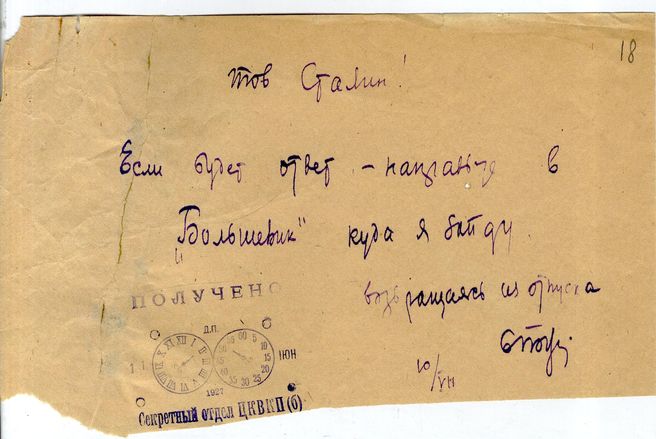 18
тов Сталин!
Если будет ответ – направьте в
"Большевик" куда я зайду
возвращаясь из отпуска
10/VII
ПОЛУЧЕНО
Д.П.
11 ИЮН
1927
Секретный отдел ЦКВКП(б)